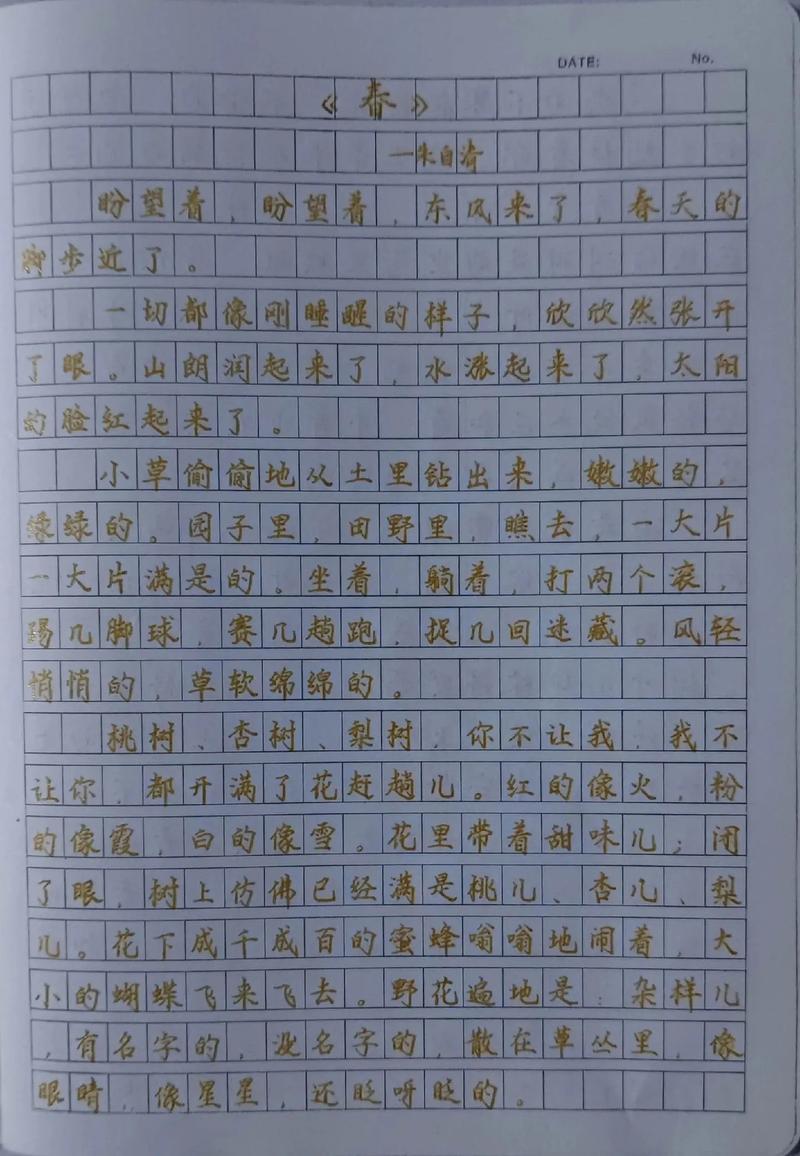 DATE: No.
《春》
—朱自清
盼望着，盼望着，东风来了，春天的
脚步近了。
一切都像刚睡醒的样子，欣欣然张开
了眼。山朗润起来了，水涨起来了，太阳
的脸红起来了。
小草偷偷地从土里钻出来，嫩嫩的，
绿绿的。园子里，田野里，瞧去，一大片
一大片满是的。坐着，躺着，打两个滚，
踢几脚球，赛几趟跑，捉几回迷藏。风轻
悄悄的，草软绵绵的。
桃树、杏树、梨树，你不让我，我不
让你，都开满了花赶趟儿。红的像火，粉
的像霞，白的像雪。花里带着甜味儿；闭
了眼，树上仿佛已经满是桃儿、杏儿、梨
儿。花下成千成百的蜜蜂嗡嗡地闹着，大
小的蝴蝶飞来飞去。野花遍地是：杂样儿
，有名字的，没名字的，散在草丛里，像
眼睛，像星星，还眨呀眨的。